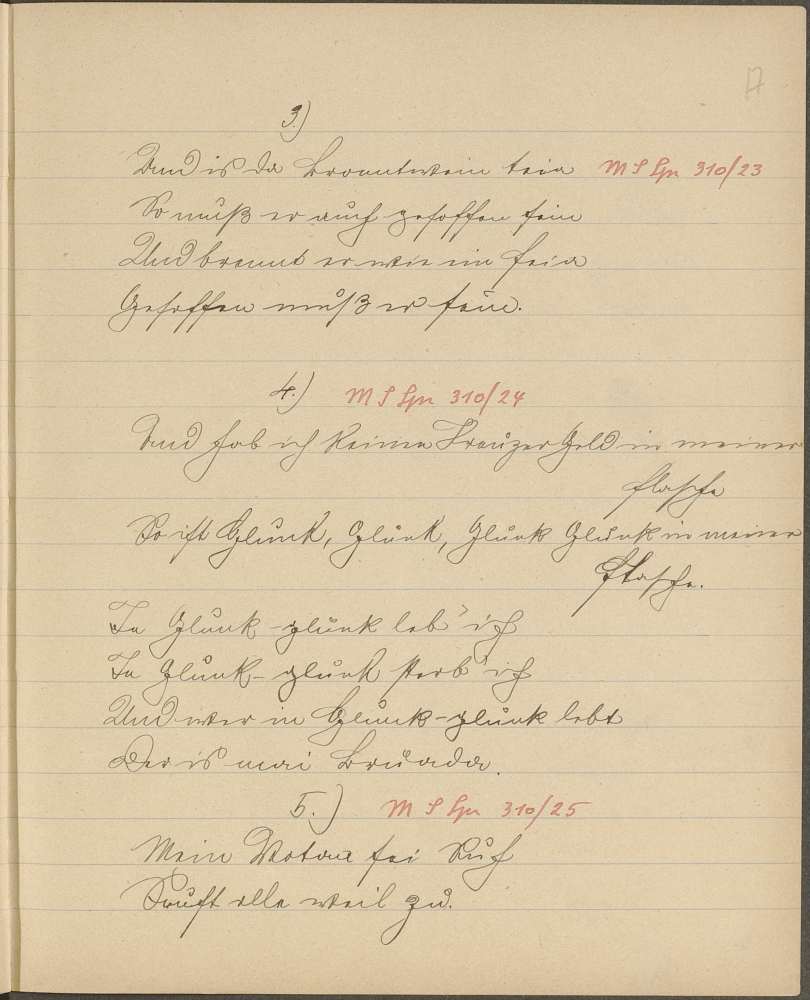 17
3.)
Und is da Branntwein teia M S Spr 310/23
So muß er auch gesoffen sein
Und brennt er wie ein Feia
Gesoffen muß er sein.
4.) M S Spr 310/24
Und hab ich keinen Kreuzer Geld in meiner
Flasche
So ist Glunk, Glunk, Glunk Glunk in meiner
Flasche.
In Glunk-glunk leb' ich
In Glunk-glunk sterb' ich
Und wer in Glunk-glunk lebt
Der is mei Bruada.
5.) M S Spr 310/25
Mein sei
Sauft alle weil zu.